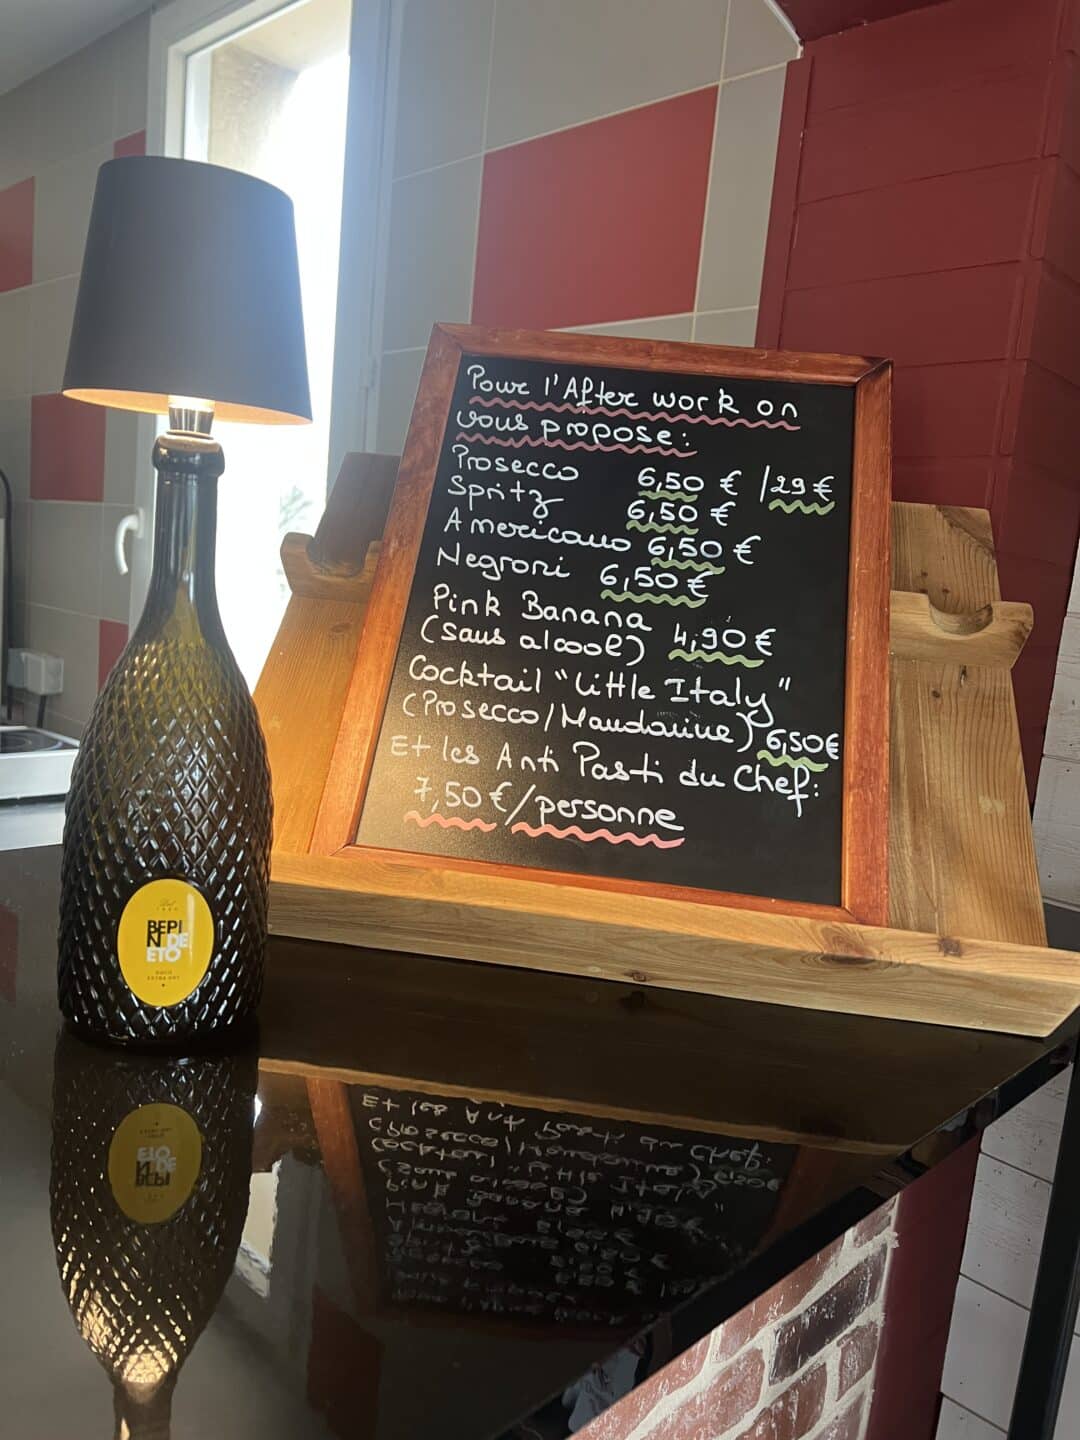 Pour l'After work on
vous propose:
Prosecco 6,50 € /29€
Spritz 6,50 €
Americano 6,50 €
Negroni 6,50 €
Pink Banana
(sans alcool) 4,90 €
Cocktail "Little Italy"
(Prosecco/Mandarine) 6,50€
Et les Anti Pasti du Chef:
7,50 €/personne
BEPI
N DE
ETO
EXTRA DRY